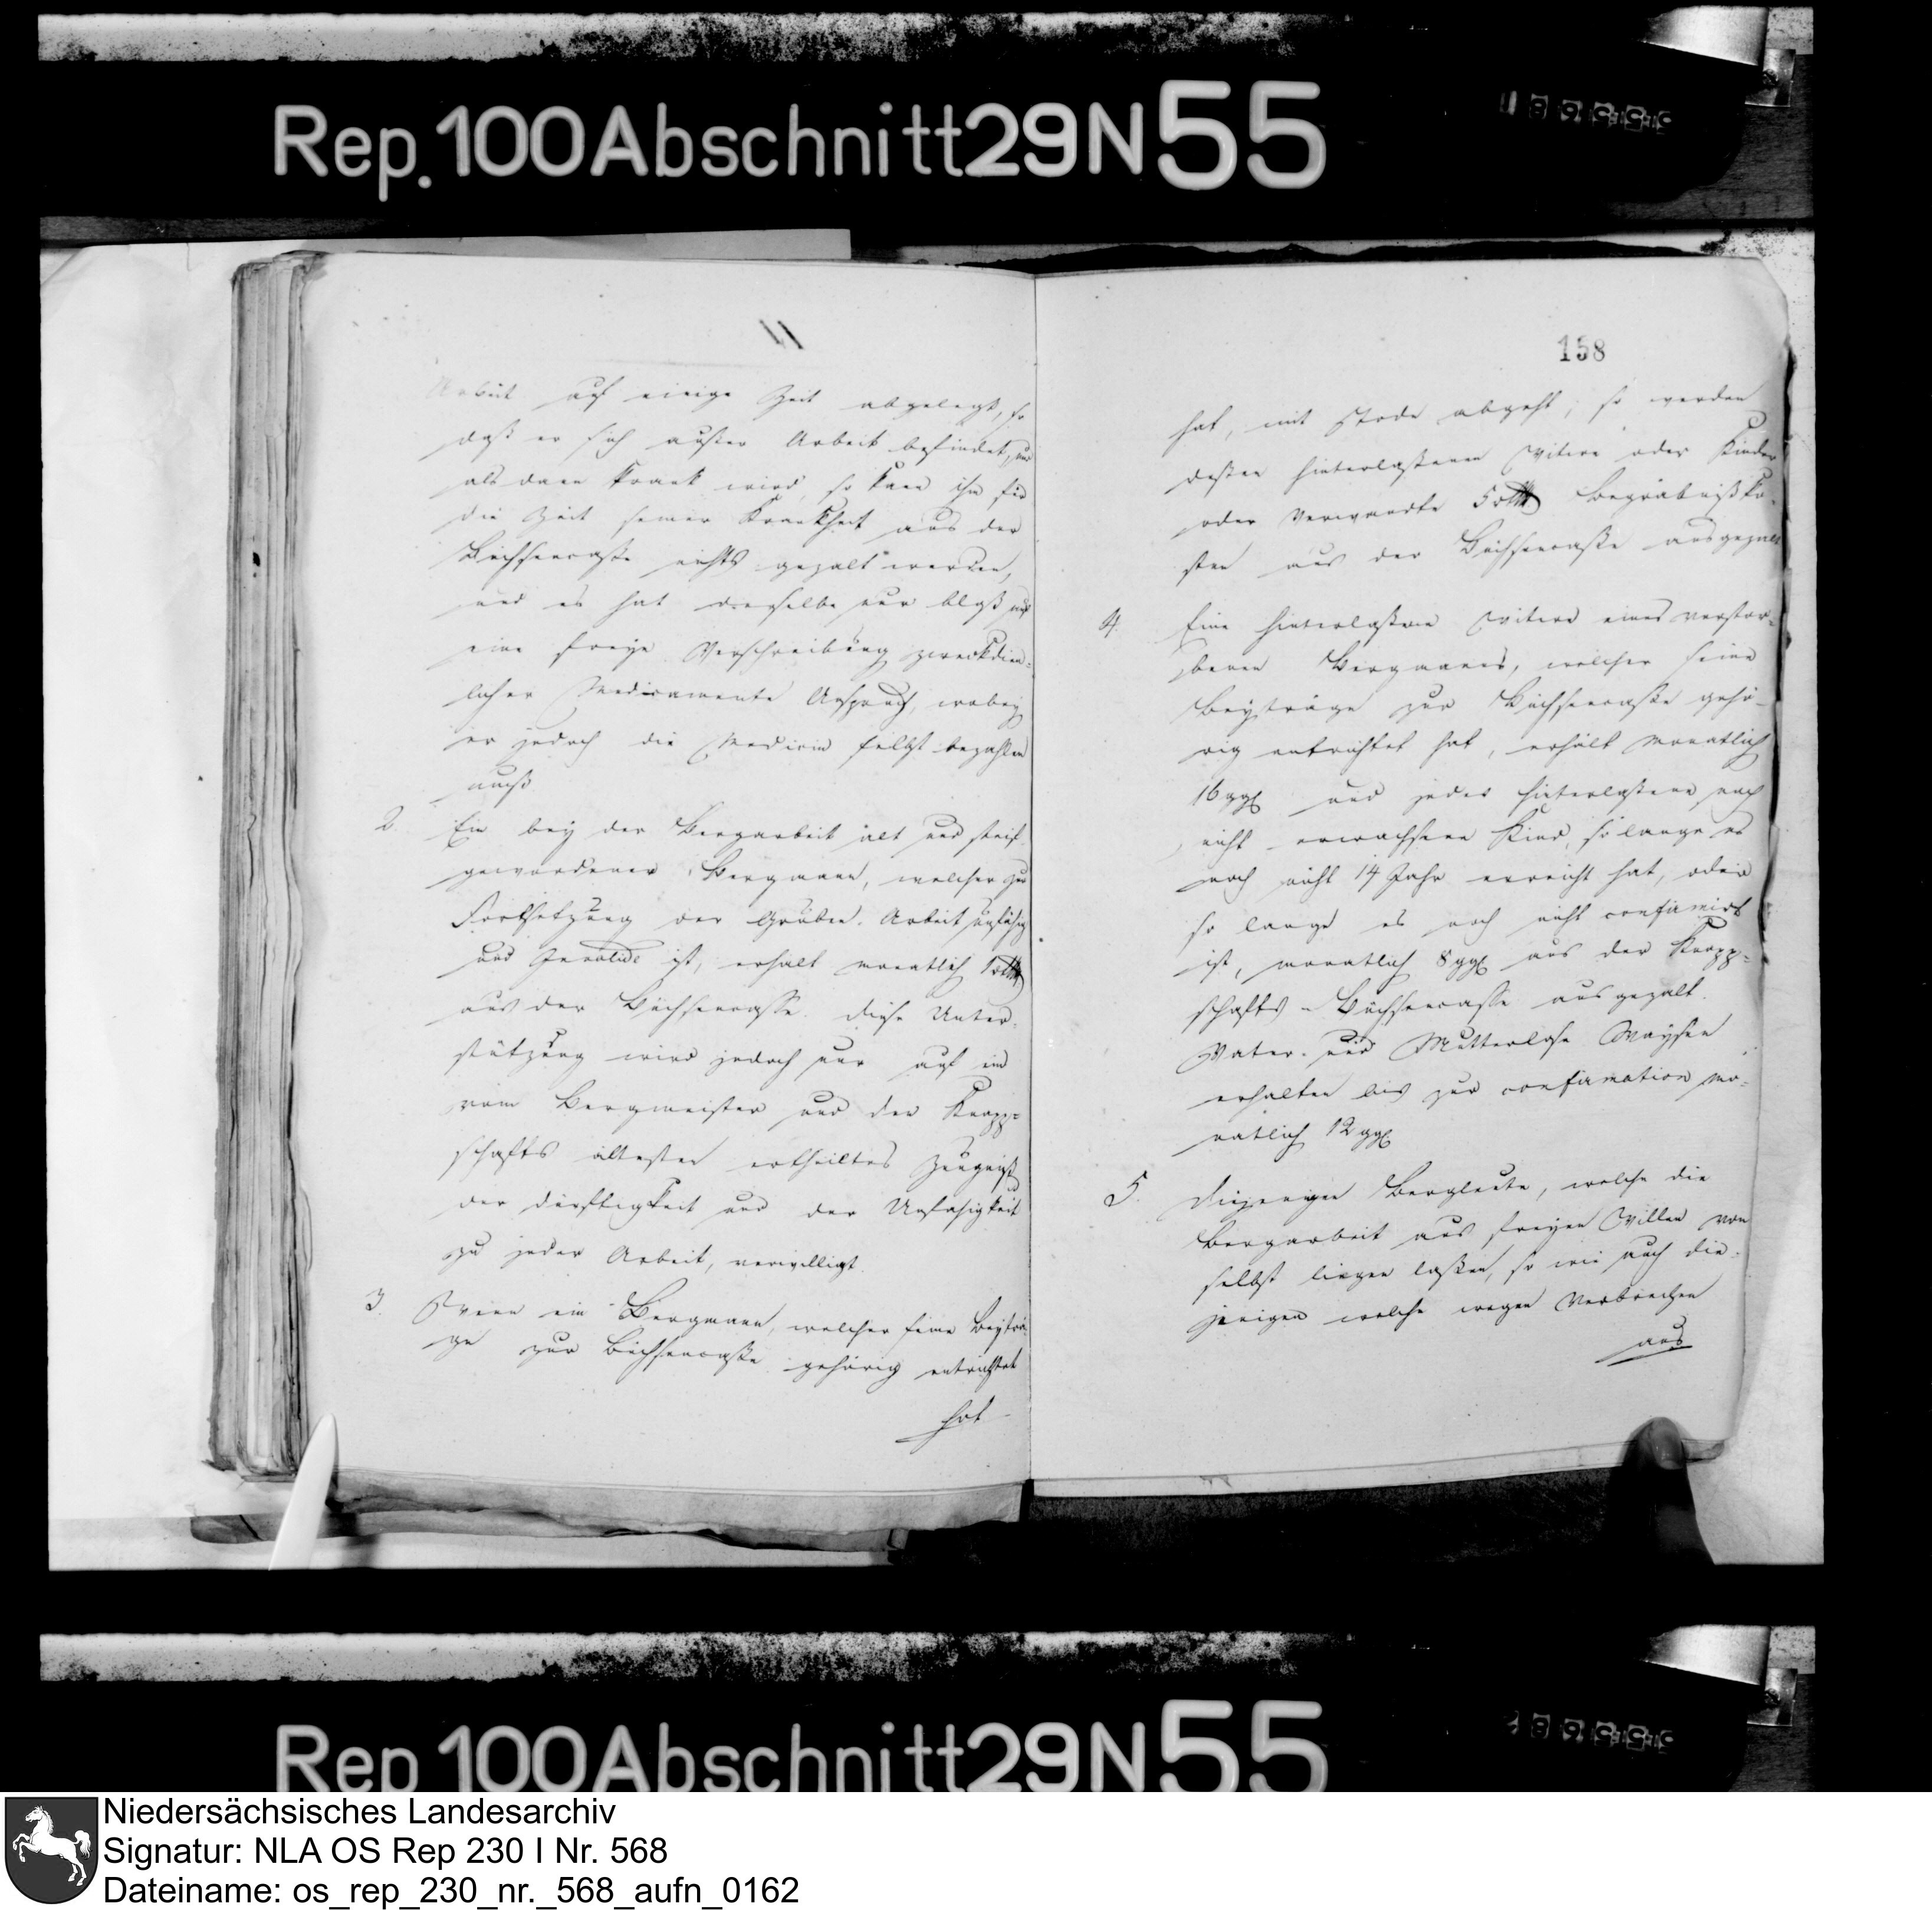 Rep. 100 Abschnitt 29 N 55
Arbeit auf einige Zeit abgelegt, so
daß er sich außer Arbeit befindet, und
als dann krank wird, so kann ihm für
die Zeit seiner Krankheit aus der
Büchsencaße nichts gezalt werden,
und es hat derselbe nur bloß auf
eine freye Verschreibung zweckdien-
licher Medicamente Anspruch, wobey
er jedoch die Medicin selbst bezahlen
muß
2. Ein bey der Bergarbeit alt und steif
gewordener Bergmann, welcher zur
Fortsetzung der Gruben-Arbeit unfähig
und Invalide ist, erhält monatlich 1 rthlr
aus der Büchsencasse. Diese Unter-
stützung wird jedoch nur auf ein
vom Bergmeister und der Knapp=
schafts ältesten ertheiltes Zeugniß
der Dürftigkeit und der Unfähigkeit
zu jeder Arbeit, verwilligt.
3. Wenn ein Bergmann, welcher seine Beyträ-
ge zur Büchsencaße gehörig entrichtet
hat
158
hat, mit Tode abgeht, so werden
deßen hinterlaßenen Witwe oder Kinder
oder Verwandte 5 rthlr Begräbnißko-
sten aus der Büchsencaße ausgezalt
4. Eine hinterlaßene Witwe eines verstor-
benen Bergmanns, welcher seine
Beyträge zur Büchsencaße gehö-
rig entrichtet hat, erhält monatlich
16 ggl und jedes hinterlaßene noch
nicht erwachsene Kind, so lange es
noch nicht 14 Jahr erreicht hat, oder
so lange es noch nicht confirmirt
ist, monatlich 8 ggl aus der Knapp=
schafts-Büchsencasse ausgezalt.
Vater- und Mutterlose Waysen
erhalten bis zur confirmation mo-
natlich 12 ggl
5. Diejenigen Bergleute, welche die
Bergarbeit aus freyen Willen von
selbst liegen laßen, so wie auch die-
jenigen welche wegen Verbrechen
aus
Rep 100 Abschnitt 29 N 55
Niedersächsisches Landesarchiv
Signatur: NLA OS Rep 230 I Nr. 568
Dateiname: os_rep_230_nr._568_aufn_0162